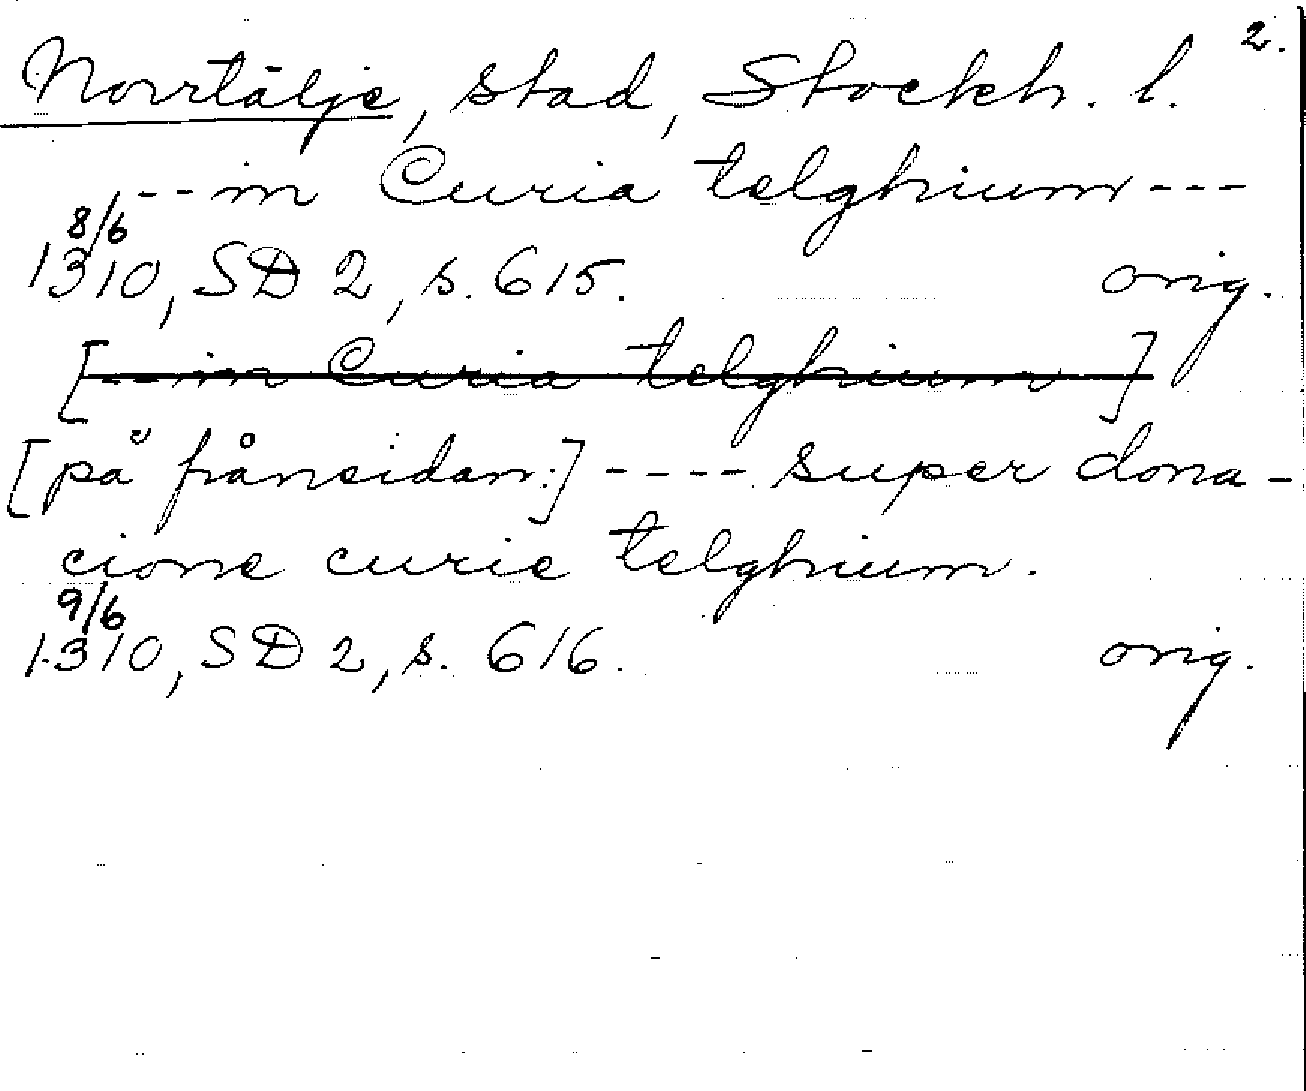 2.
Norrtälje, stad, Stockh. l.
--- in Curia telghium ---
8/6
1310, SD 2, s. 615. orig.
[--- in Curia telghium ]
[på frånsidan:] ---- super dona-
cione curie telghium.
9/6
1310, SD 2, s. 616. orig.